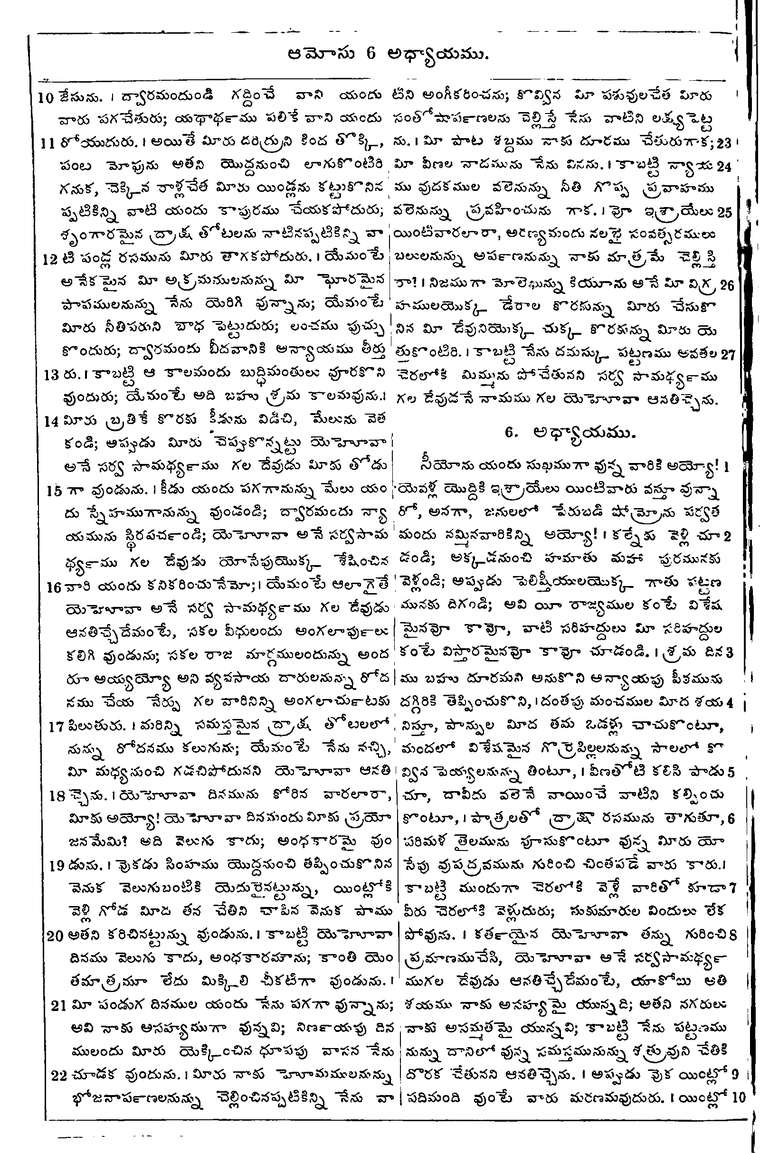 ఆమోసు 6 అధ్యాయము.
10 జేసును. । ద్వారమందుండి గద్దించే వాని యందు
వారు పగచేతురు; యథార్థము పలికే వాని యందు
11 రోయుదురు. । అయితే మీరు దరిద్రుని కింద తొక్కి,
పంట మోపును అతని యొద్దనుంచి లాగుకొంటిరి
గనుక, చెక్కిన రాళ్లచేత మీరు యిండ్లను కట్టుకొనిన
ప్పటికిన్ని వాటి యందు కాపురము చేయకపోదురు;
శృంగారమైన ద్రాక్ష తోటలను నాటినప్పటికిన్ని వా
12 టి పండ్ల రసమును మీరు తాగకపోదురు. । యేమంటే
అనేకమైన మీ అక్రమములనున్ను మీ ఘోరమైన
పాపములనున్ను నేను యెరిగి వున్నాను; యేమంటే
మీరు నీతిపరుని బాధ పెట్టుదురు; లంచము పుచ్చు
కొందురు; ద్వారమందు బీదవానికి అన్యాయము తీర్తు
13 రు. । కాబట్టి ఆ కాలమందు బుద్ధిమంతులు వూరకొని
వుందురు; యేమంటే అది బహు శ్రమ కాలమవును.।
14 మీరు బ్రతికే కొరకు కీడును విడిచి, మేలును వెత
కండి; అప్పుడు మీరు చెప్పుకొన్నట్టు యెహోవా
అనే సర్వ సామర్థ్యము గల దేవుడు మీకు తోడు
15 గా వుండును. । కీడు యందు పగగానున్ను మేలు యం
దు స్నేహముగానున్ను వుండండి; ద్వారమందు న్యా
యమును స్థిరపర్చండి; యెహోవా అనే సర్వసామ
ర్థ్యము గల దేవుడు యోసేపుయొక్క శేషించిన
16 వారి యందు కనికరించునేమో;। యేమంటే ఆలాగైతే
యెహోవా అనే సర్వ సామర్థ్యము గల దేవుడు
ఆనతిచ్చేదేమంటే, సకల వీధులందు అంగలార్పులు
కలిగి వుండును; సకల రాజ మార్గములందున్ను అంద
రూ అయ్యయ్యో అని వ్యవసాయ దారులనున్ను రోద
నము చేయ నేర్పు గల వారినిన్ని అంగలార్చుటకు
17 పిలుతురు. । మరిన్ని సమస్తమైన ద్రాక్ష తోటలలో
నున్ను రోదనము కలుగును; యేమంటే నేను నచ్చి,
మీ మధ్యనుంచి గడచిపోదునని యెహోవా ఆనతి
18 చ్చెను. । యెహోవా దినమును కోరిన వారలారా,
మీకు అయ్యో! యెహోవా దినమందు మీకు ప్రయో
జనమేమి? అది వెలుగు కాదు; అంధకారమై వుం
19 డును. । వొకడు సింహము యొద్దనుంచి తప్పించుకొనిన
వెనుక వెలుగుబంటికి యెదురైనట్టున్ను, యింట్లోకి
వెళ్లి గోడ మీద తన చేతిని చాపిన వెనుక పాము
20 అతని కరిచినట్టున్ను వుండును. । కాబట్టి యెహోవా
దినము వెలుగు కాదు, అంధకారమాను; కాంతి యెం
తమాత్రమూ లేదు మిక్కిలి చీకటిగా వుండును. ।
21 మీ పండుగ దినముల యందు నేను పగగా వున్నాను;
అవి నాకు అసహ్యముగా వున్నవి; నిర్ణయపు దిన
ములందు మీరు యెక్కించిన ధూపపు వాసన నేను
22 చూడక వుందును. । మీరు నాకు హోమములనున్ను
భోజనార్పణలనున్ను చెల్లించినప్పటికిన్ని నేను వా
టిని అంగీకరించను; కొవ్విన మీ పశువులచేత మీరు
సంతోషార్పణలను చెల్లిస్తే నేను వాటిని లక్ష్యపెట్ట
ను. । మీ పాట శబ్దము నాకు దూరము చేతురుగాక; 23
మీ వీణల నాదమును నేను వినను. । కాబట్టి న్యాయ 24
ము వుదకముల వలెనున్ను నీతి గొప్ప ప్రవాహము
వలెనున్ను ప్రవహించును గాక. । వో ఇశ్రాయేలు 25
యింటివారలారా, అరణ్యమందు నలభై సంవత్సరములు
బలులనున్ను అర్పణనున్ను నాకు మాత్రమే చెల్లిస్తి
రా? । నిజముగా మోలెఖున్ను కియూను అనే మీ విగ్ర 26
హములయొక్క డేరాల కొరకున్ను మీరు చేసుకొ
నిన మీ దేవునియొక్క చుక్క కొరకున్ను మీరు యె
త్తుకొంటిరి. । కాబట్టి నేను దమస్కు పట్టణము అవతల 27
చెరలోకి మిమ్మును పోచేతునని సర్వ సామర్థ్యము
గల దేవుడనే నామము గల యెహోవా ఆనతిచ్చెను.
6. అధ్యాయము.
సీయోను యందు సుఖముగా వున్న వారికి అయ్యో! 1
యెవళ్ల యొద్దికి ఇశ్రాయేలు యింటివారు వస్తూ వున్నా
రో, అనగా, జనులలో పేరుబడి షోమ్రోను పర్వత
మందు నమ్మినవారికిన్ని అయ్యో! । కల్నేకు వెళ్లి చూ 2
డండి; అక్కడనుంచి హమాతు మహా పురమునకు
వెళ్లండి; అప్పుడు పెలిష్తీయులయొక్క గాతు పట్టణ
మునకు దిగండి; అవి యీ రాజ్యముల కంటే విశేష
మైనవో కావో, వాటి సరిహద్దులు మీ సరిహద్దుల
కంటే విస్తారమైనవో కావో చూడండి. । శ్రమ దిన 3
ము బహు దూరమని అనుకొని అన్యాయపు పీకమును
దగ్గిరికి తెప్పించుకొని, । దంతపు మంచముల మీద శయ 4
నిస్తూ, పాన్పుల మీద తమ ఒడళ్లు చాచుకొంటూ,
మందలో విశేషమైన గొర్రెపిల్లలనున్ను సాలలో కొ
వ్విన పెయ్యలనున్ను తింటూ, । వీణతోటి కలిసి పాడు 5
చూ, దావీదు వలెనే వాయించే వాటిని కల్పించు
కొంటూ, । పాత్రలతో ద్రాక్ష రసమును తాగుతూ, 6
పరిమళ తైలమును పూసుకొంటూ వున్న మీరు యో
సేపు వుపద్రవమును గురించి చింతపడే వారు కారు.।
కాబట్టి ముందుగా చెరలోకి వెళ్లే వారితో కూడా 7
వీరు చెరలోకి వెళ్లుదురు; సుకుమారుల విందులు లేక
పోవును. । కర్తయైన యెహోవా తన్ను గురించి 8
ప్రమాణముచేసి, యెహోవా అనే సర్వసామర్థ్య
ముగల దేవుడు ఆనతిచ్చేదేమంటే, యాకోబు అతి
శయము నాకు అసహ్యమై యున్నది; అతని నగరులు
నాకు అసమ్మతమై యున్నవి; కాబట్టి నేను పట్టణము
నున్ను దానిలో వున్న సమస్తమునున్ను శత్రువుని చేతికి
దొరక చేతునని ఆనతిచ్చెను. । అప్పుడు వొక యింట్లో 9
పదిమంది వుంటే వారు మరణమవుదురు. । యింట్లో 10